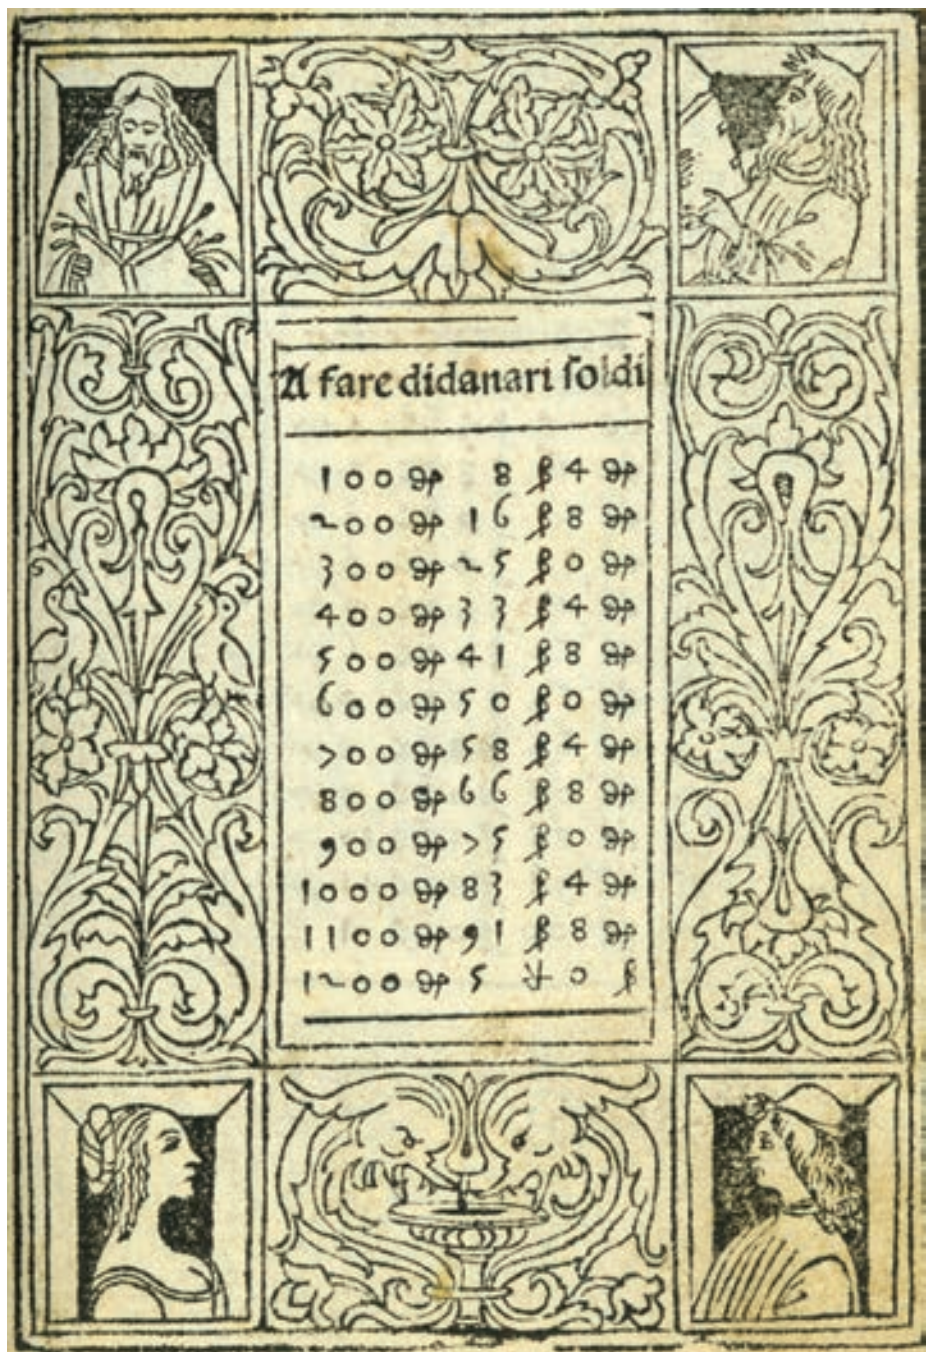 A fare didanari ſoldi
100 ₰ 8 ß 4 ₰
200 ₰ 16 ß 8 ₰
300 ₰ 25 ß 0 ₰
400 ₰ 33 ß 4 ₰
500 ₰ 41 ß 8 ₰
600 ₰ 50 ß 0 ₰
700 ₰ 58 ß 4 ₰
800 ₰ 66 ß 8 ₰
900 ₰ 75 ß 0 ₰
1000 ₰ 83 ß 4 ₰
1100 ₰ 91 ß 8 ₰
1200 ₰ 5 0 ß